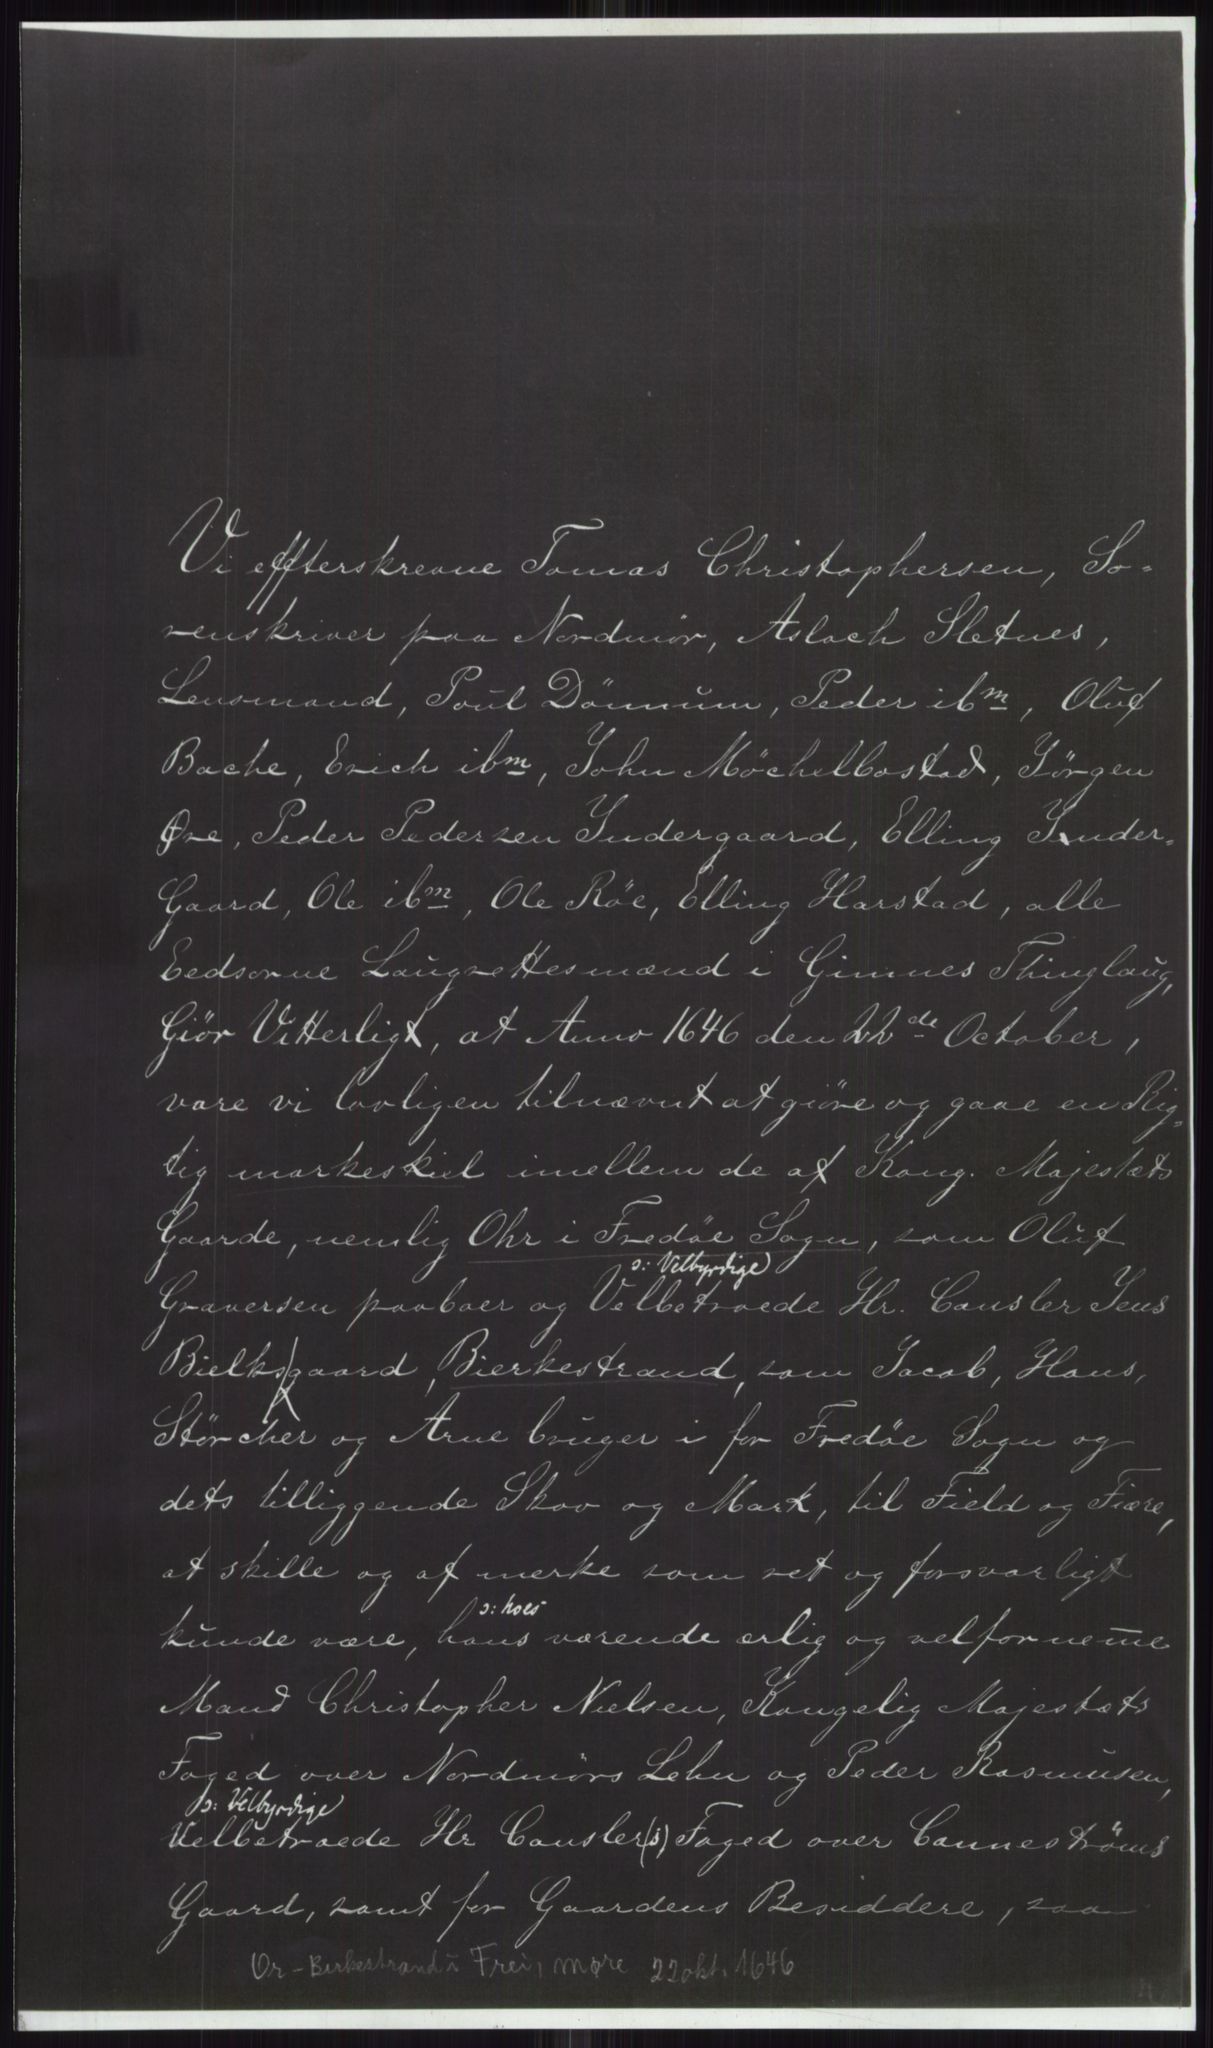 Vi effterskrevne Tomas Christophersen, So-
renskriver paa Nordmör, Aslach Sletnes,
Lensmand, Poul Dönnum, Peder ibm, Oluf
Bache, Erich ibm, John Möchelbostad, Jörgen
Øre, Peder Pedersen Indergaard, Elling Inder-
Gaard, Ole ibm, Ole Röe, Elling Harstad, alle
Eedsorne Laugrettesmænd i Gimnes Thinglaug,
Giör Vitterligt, at Anno 1646 den 22de October,
vare vi lovligen tilnævnt at giöre og gaae en Rig-
tig markeskiel imellem de af Kong. Majestæts
Gaarde, nemlig Ohr i Fredöe Sogn, som Oluf
ɔ: Velbyrdige)
Graversen paaboer og Velbetroede Hr. Cansler Jens
Bielks gaard, Bierkestrand, som Jacob, Hans,
Störcher og Arne bruger i for Fredöe Sogn og
dets tilliggende Skov og Mark, til Field og Fiære,
at skille og af merke som ret og forsvarligt
ɔ: hoes
kunde være, hans værende ærlig og velforneme
Mand Christopher Nielsen, Kongelig Majestæts
Foged over Nordmörs Lehn og Peder Rasmusen,
ɔ: Velbyrdige
Velbetroede Hr Cansler(s) Foged over Canneströms
Gaard, samt for Gaardens Besiddere, saa
Or - Berkestrand i Frei, Møre 22 okt. 1646